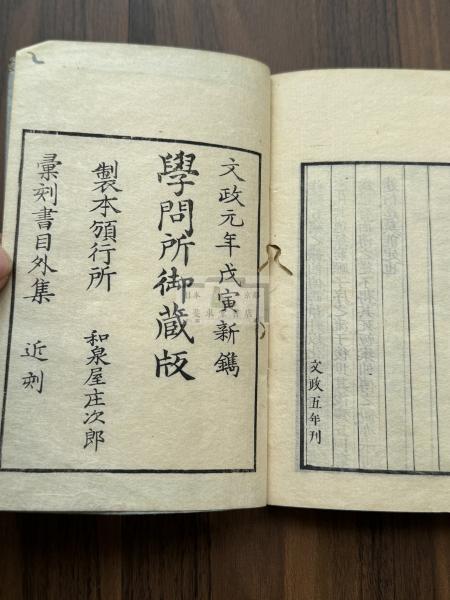 文政五年刊
文政元年戊寅新鐫
學問所御蔵版
製本頒行所 和泉屋庄次郎
彙刻書目外集 近刻